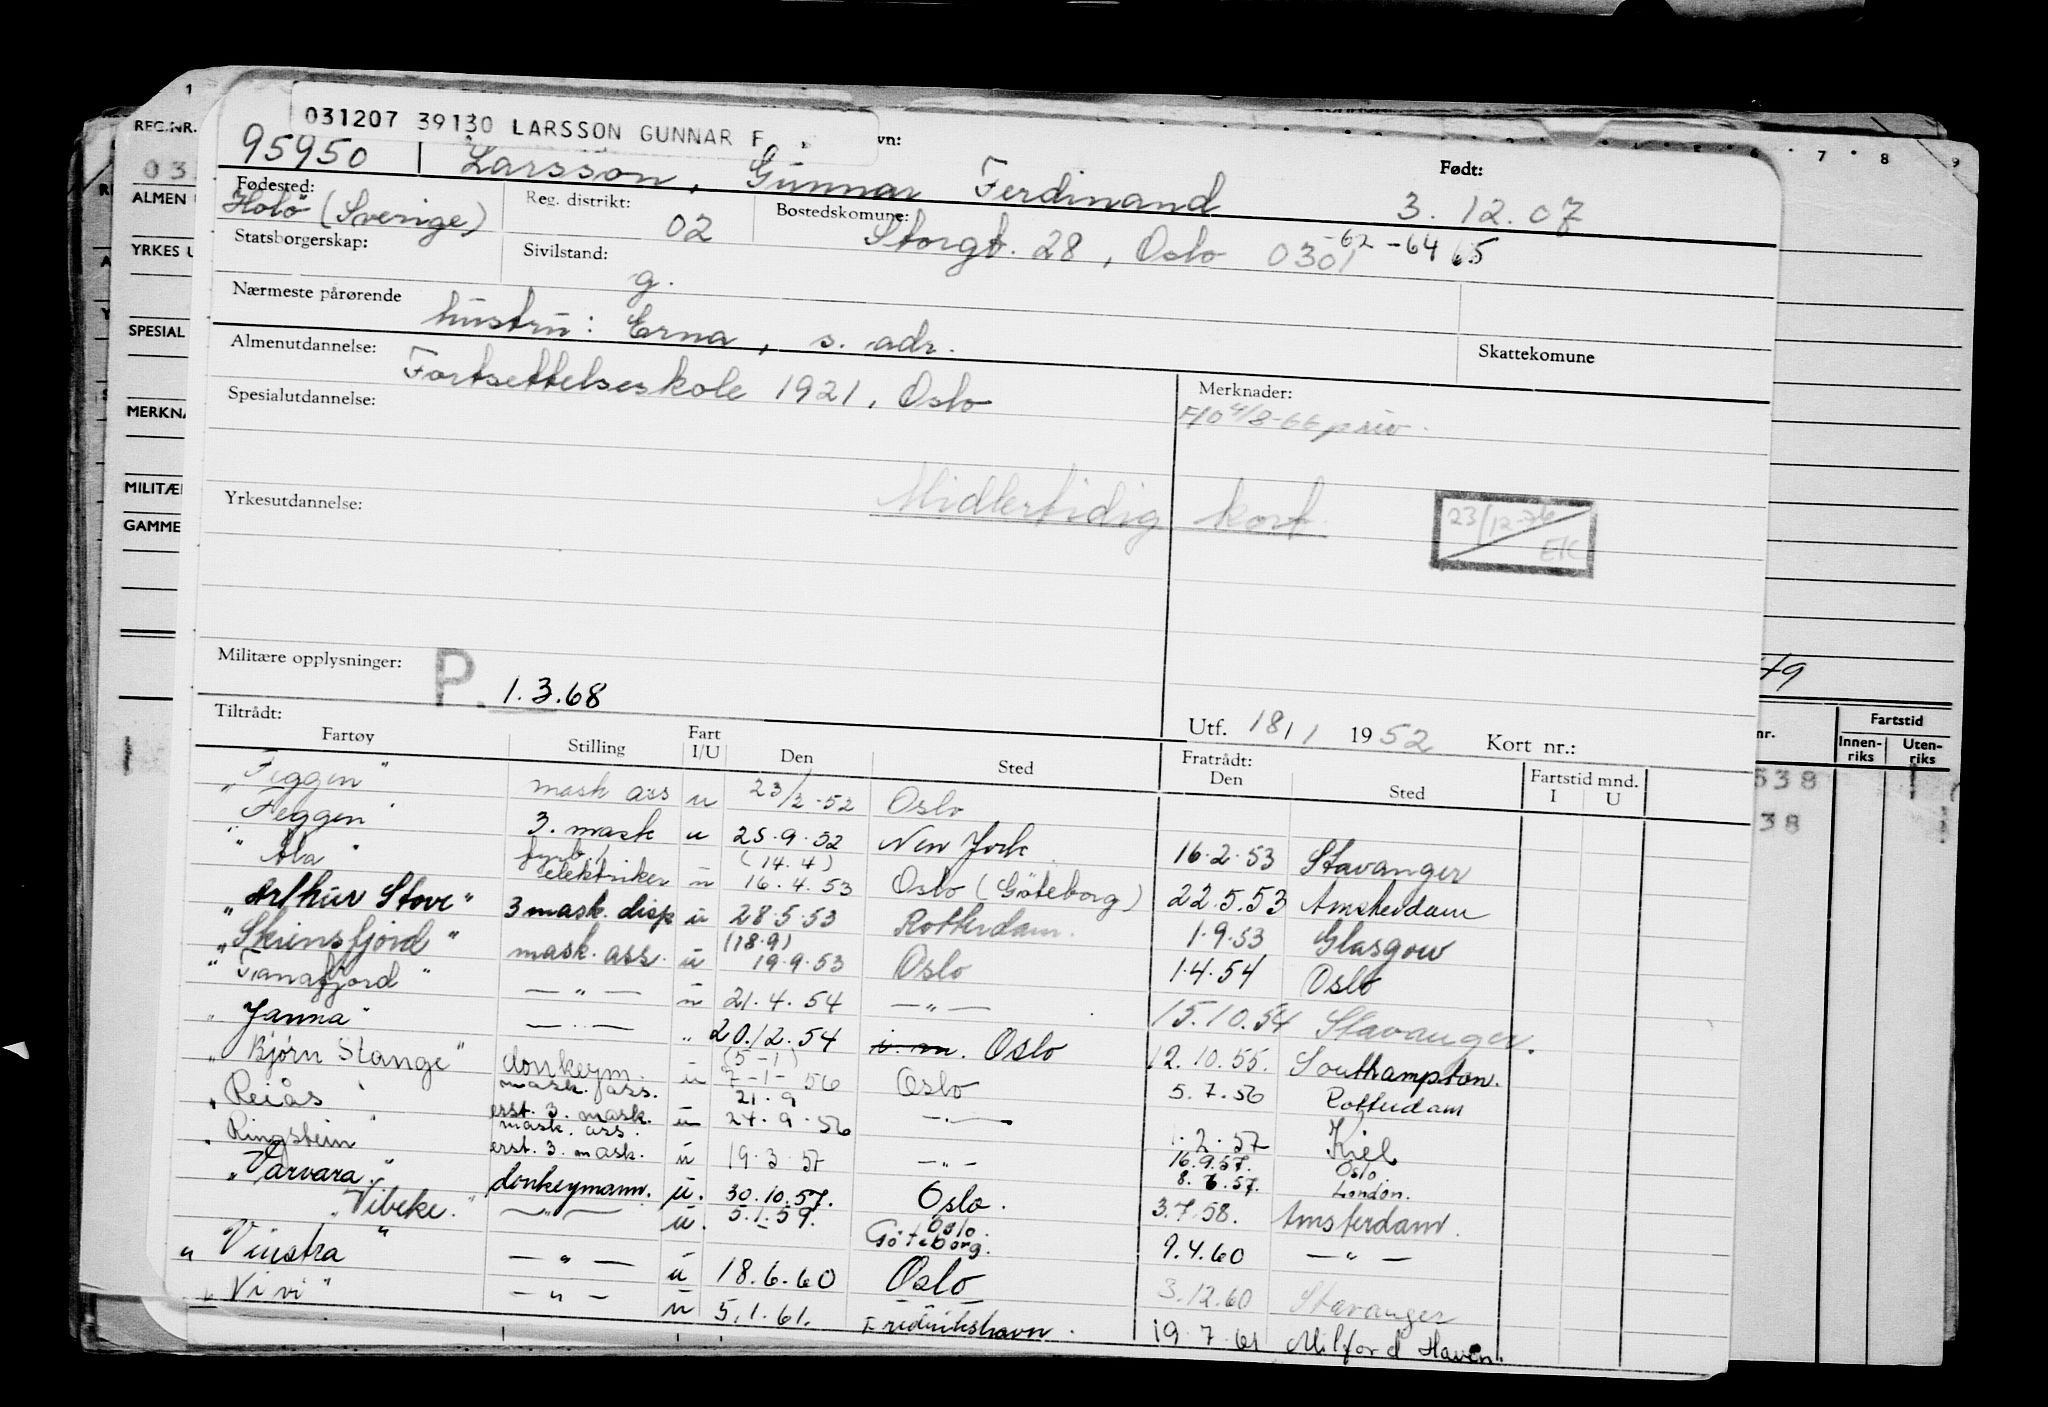 031207 39130 LARSSON GUNNAR F.
vn:
95950 Larsson, Gunnar Ferdinand
Født: 3.12.07
Fødested: Holö (Sverige)
Reg. distrikt: 02
Bostedskomune: Storgt. 28, Oslo 0301 -62 -64 65
Statsborgerskap:
Sivilstand: g.
Nærmeste pårørende hustru: Erna, s. adr.
Skattekomune
Almenutdannelse: Fortsettelseskole 1921, Oslo
Merknader:
Spesialutdannelse:
Midlertidig kort
Yrkesutdannelse:
23/12-76 EK
Militære opplysninger: P. 1.3.68
Utf. 18/1 1952 Kort nr.:
Tiltrådt: Fratrådt:
Fartøy Stilling Fart I/U Den Sted Den Sted Fartstid mnd. I U
"Feggen" mask ass u 23/2-52 Oslo
"Feggen" 3. mask u 25.9.52 New York 16.2.53 Stavanger
"Ala" fyrb./elektriker u (14.4) 16.4.53 Oslo (Göteborg) 22.5.53 Amsterdam
"Arthur Stove" 3 mask. disp u 28.5.53 Rotterdam. 1.9.53 Glasgow
"Skiensfjord" mask. ass. u (18.9) 19.9.53 Oslo 1.4.54 Oslo
"Tanafjord" — " — u 21.4.54 — " — 15.10.54 Stavanger.
"Janna" — " — " 20.12.54 Oslo 12.10.55. Southampton.
"Bjørn Stange" donkeym. u (5-1) 7-1-56 Oslo 5.7.56 Rotterdam
"Reiås" mask. ass. erst. 3. mask. u 21.9 24.9.56 — " — 1.2.57 Kiel
"Ringstein" mask. ass. erst. 3. mask. u 19.3.57 — " — 16.9.57. Oslo. 8.6.57. London.
"Varvara" donkeymann. u. 30.10.57. Oslo. 3.7.58. Amsterdam.
"Vibeke" — " — u. 5.1.59. Oslo. Göteborg. 9.4.60 — " —
"Vinstra" — " — u 18.6.60 Oslo 3.12.60 Stavanger
"Vivi" — " — u 5.1.61. Fredrikshavn. 19.7.61 Milford Haven.
REG.NR.
03
ALMEN
YRKES U
SPESIAL
MERKNA
MILITÆR
GAMME
7 8 9
49
nr.
Fartstid
Innen-riks Uten-riks
538
38